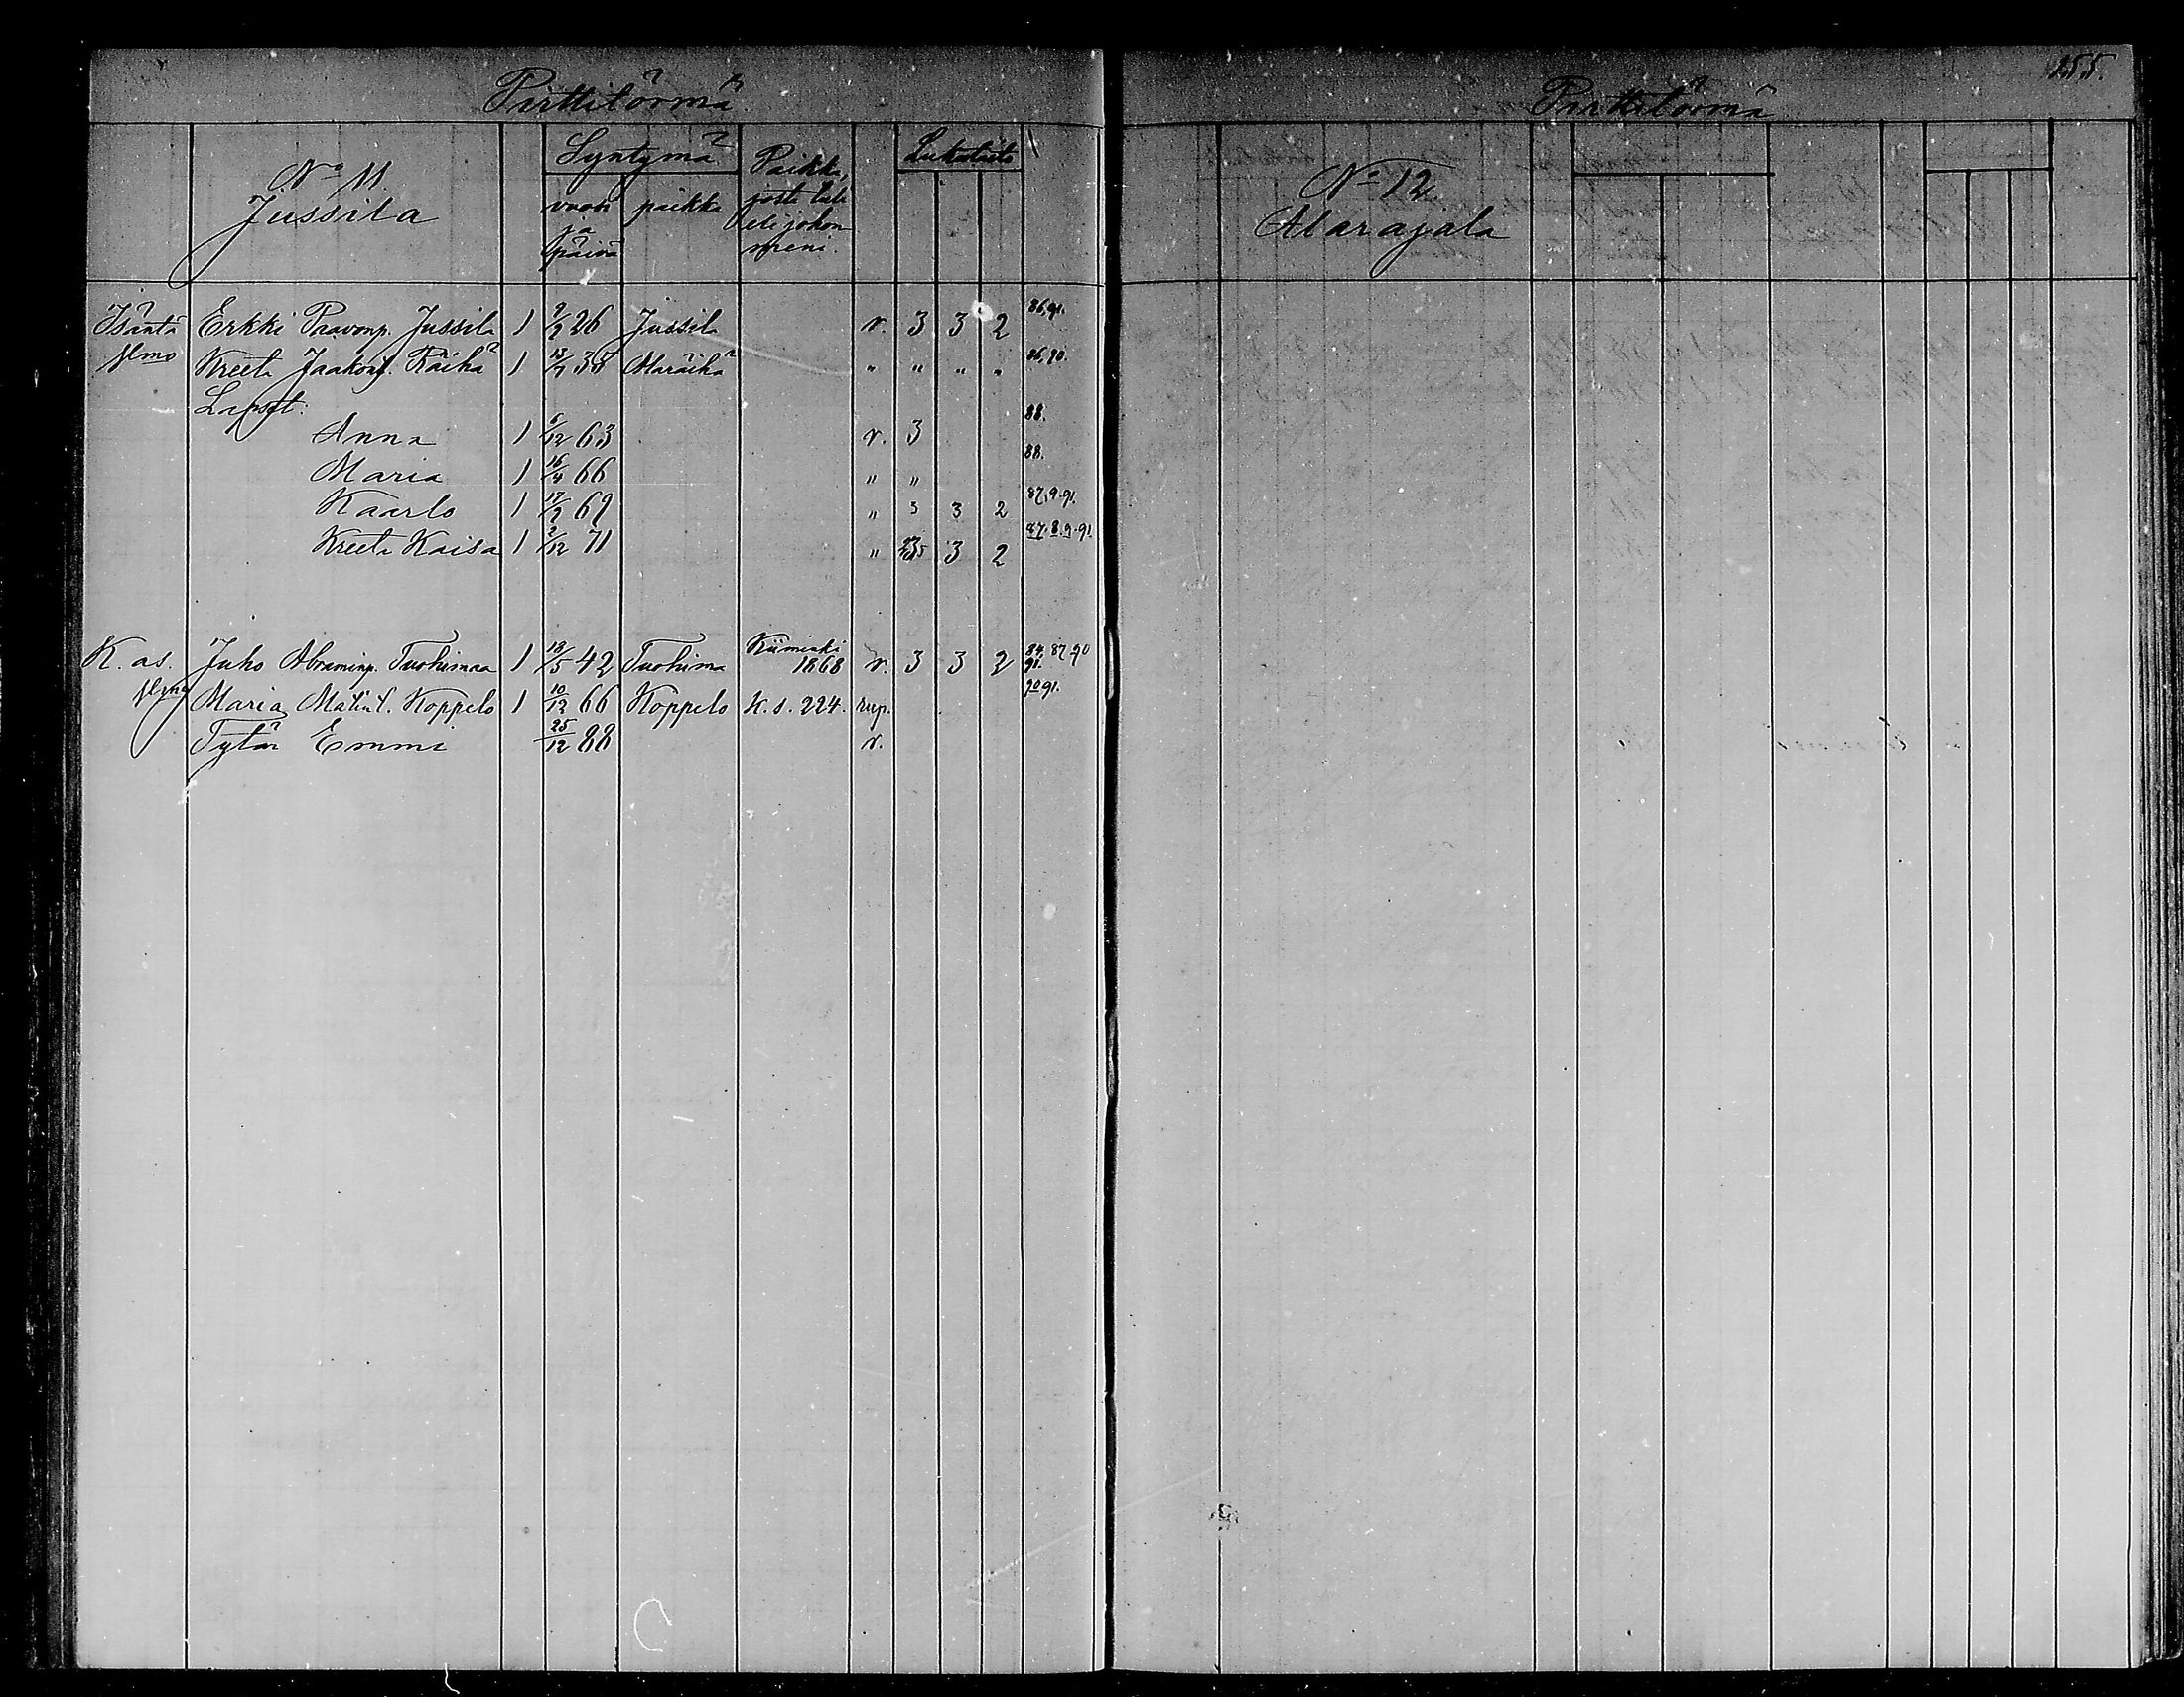 Pirttitörmä
No 11.
Jussila
Syntymä
vuosi ja päivä
paikka
Paikka,
josta tuli
eli johon
meni.
Lukutaito
Isäntä Erkki Paavonp. Jussila 1 9/2 26 Jussila v. 3 3 2 86,91.
Vmo Kreeta Jaakont. Räihä 1 13/7 35 Alaräihä " " " " 86,90.
Lapset:
Anna 1 5/12 63 v. 3 88.
Maria 1 16/4 66 " " 88.
Kaarlo 1 17/2 69 " 3 3 2 87,9.91.
Kreeta Kaisa 1 2/12 71 " 3 2 87.8.9.91.
K. as. Juho Abraminp. Tuohimaa 1 13/5 42 Tuohima Kiiminki 1868 v. 3 3 2 84.87.90 91.
Maria Matint. Koppelo 1 10/12 66 Koppelo k.s. 224. rup. 90 91.
Tytär Emmi 25/12 88 v.
255.
Pirttitörmä
No 12.
Alarajala